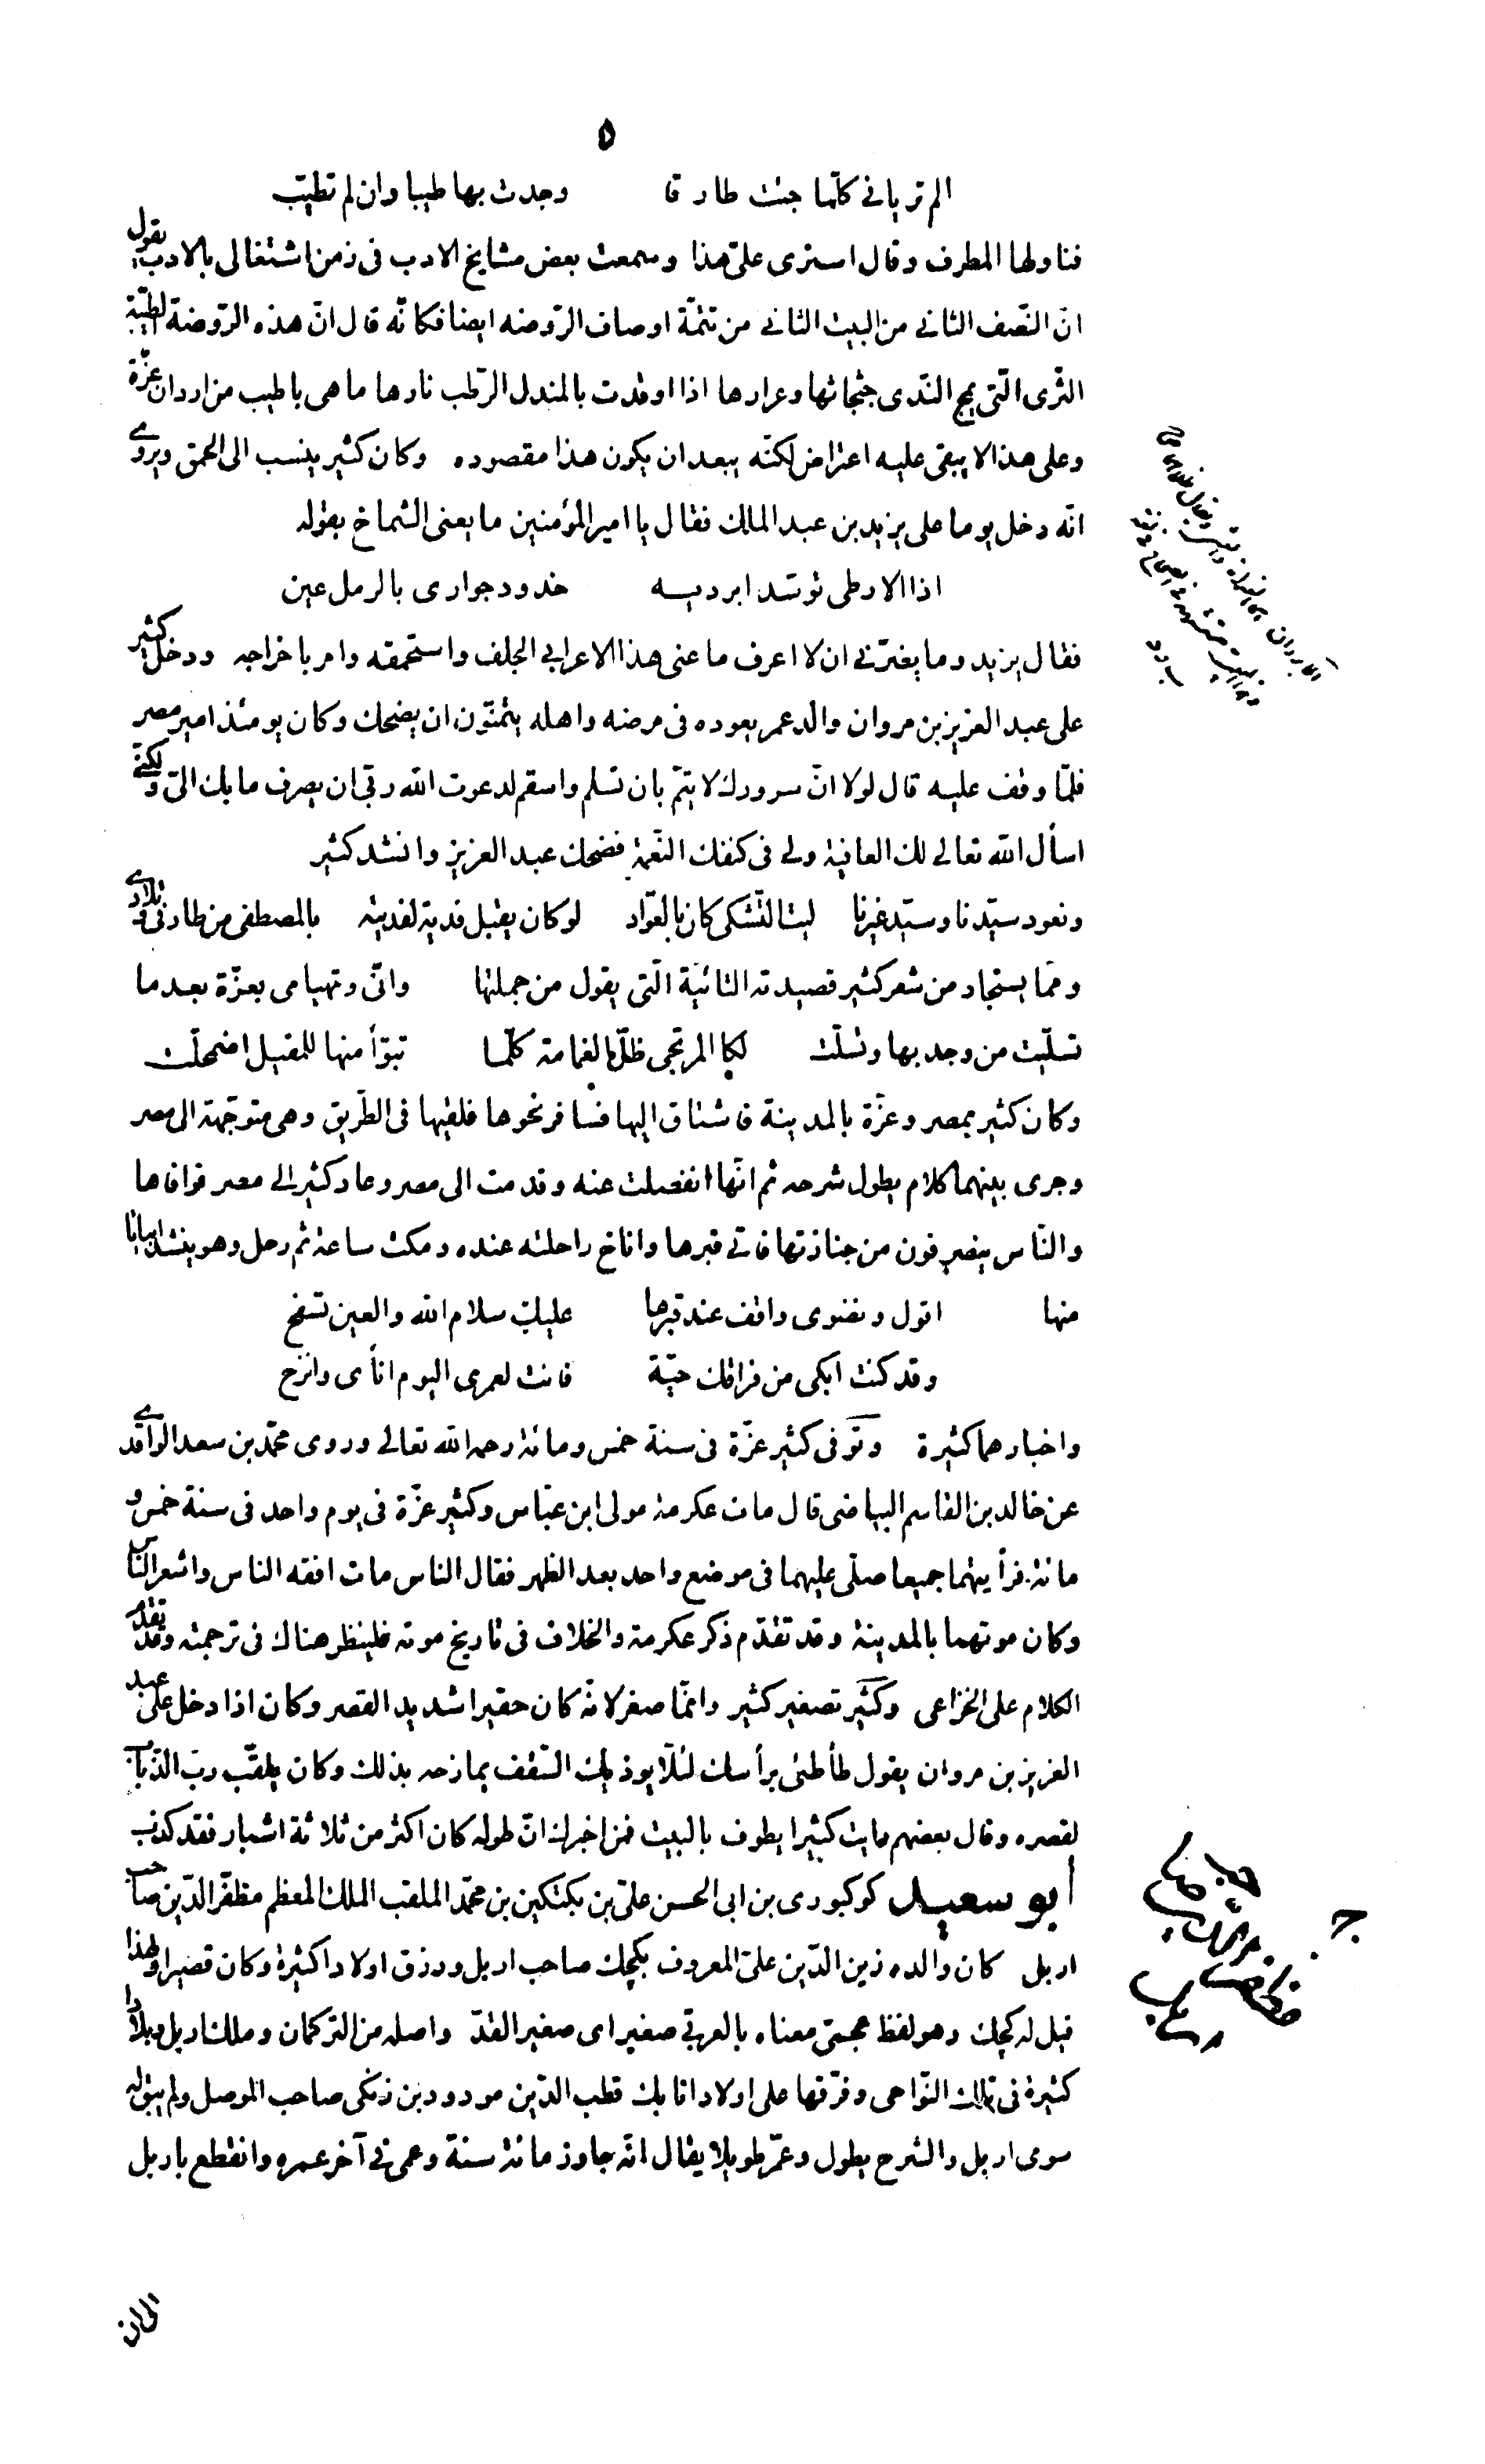 ٥
الم تريانى كلّما جئت طارقا وجدت بها طيبا وان لم تطيّب
فناولها المطرف وقال استرى علىّ هذا وسمعت بعض مشايخ الادب فى زمن اشتغالى بالادب يقول
انّ النّصف الثانى من البيت الثانى من تتمّة اوصاف الرّوضه ايضا فكانّه قال انّ هذه الرّوضة الطّيّبة
الثّرى الّتى يمج النّدى جثجاثها وعرارها اذا اوقدت بالمندل الرّطب نارها ما هى باطيب من اردان عزّة
وعلى هذا لا يبقى عليه اعتراض لكنّه يبعد ان يكون هذا مقصوده وكان كثير ينسب الى الحمق ويروى
انّه دخل يوما على يزيد بن عبد الملك فقال يا امير المؤمنين ما يعنى الشماخ بقوله
اذا الارطى توسّد ابرديه خدود جوارى بالرمل عين
فقال يزيد وما يضرّنى ان لا اعرف ما عنى هذا الاعرابى الجلف واستحمقه وامر باخراجه ودخل كثير
على عبد العزيز بن مروان والد عمر يعوده فى مرضه واهله يتمنّون ان يضحك وكان يومئذ امير مصر
فلمّا وقف عليه قال لولا انّ سرورك لا يتمّ بان تسلم واسقم لدعوت الله ربّى ان يصرف ما بك الىّ ولكنّى
اسأل الله تعالى لك العافية ولى فى كنفك النّعمة فضحك عبد العزيز وانشد كثير
ونعود سيّدنا وسيّد غيرنا ليت التّشكى كان بالعوّاد لو كان يقبل فدية لفديته بالمصطفى من طارفى وتلادى
وممّا يستجاد من شعر كثير قصيدته التائيّة الّتى يقول من جملتها وانّى وتهيامى بعزّة بعد ما
تسلّيت من وجد بها وتسلّت لكا المرتجى ظلّ الغمامة كلّما تبوّأ منها للمقيل اضمحلّت
وكان كثير بمصر وعزّة بالمدينة فاشتاق اليها فسافر نحوها فلقيها فى الطّريق وهى متوجّهة الى مصر
وجرى بينهما كلام يطول شرحه ثم انّها انفصلت عنه وقدمت الى مصر وعاد كثير الى مصر فوافاها
والنّاس ينصرفون من جنازتها فاتى قبرها واناخ راحلته عنده ومكث ساعة ثم رحل وهو ينشد ابياتا
منها اقول ونضوى واقف عند قبرها عليك سلام الله والعين تسفح
وقد كنت ابكى من فراقك حيّة فانت لعمرى اليوم انأى وانزح
واخبارهما كثيرة وتوفى كثير عزّة فى سنة خمس ومائة رحمه الله تعالى وروى محمّد بن سعد الواقدى
عن خالد بن القاسم البياضى قال مات عكرمة مولى ابن عبّاس وكثير عزّة فى يوم واحد فى سنة خمس و
مائة فرأيتهما جميعا صلّى عليهما فى موضع واحد بعد الظهر فقال الناس مات افقه الناس واشعر النّاس
وكان موتهما بالمدينة وقد تقدّم ذكر عكرمة والخلاف فى تاريخ موته فلينظر هناك فى ترجمته وقد تقدّم
الكلام على الخزاعى وكثيّر تصغير كثير وانّما صغر لانّه كان حقيرا شديد القصر وكان اذا دخل على عبد
العزيز بن مروان يقول طأطئ برأسك لئلّا يوذيك السّقف يمازحه بذلك وكان يلقّب ربّ الذّباب
لقصره وقال بعضهم رايت كثيرا يطوف بالبيت فمن اخبرك انّ طوله كان اكثر من ثلاثة اشبار فقد كذب
أبو سعيد كوكبورى بن ابى الحسن علىّ بن بكتكين بن محمّد الملقب الملك المعظم مظفّر الدّين صاحب
اربل كان والده زين الدّين علىّ المعروف بكجك صاحب اربل ورزق اولادا كثيرة وكان قصيرا ولهذا
قيل له كجك وهو لفظ عجمىّ معناه بالعربّى صغير اى صغير القدّ واصله من التركمان وملك اربل وبلادا
كثيرة فى تلك النّواحى وفرّقها على اولاد اتابك قطب الدّين مودود بن زنكى صاحب الموصل ولم يبق له
سوى اربل والشرح يطول وعمّر طويلا يقال انّه جاوز مائة سنة وعمى فى آخر عمره وانقطع باربل
الى ان